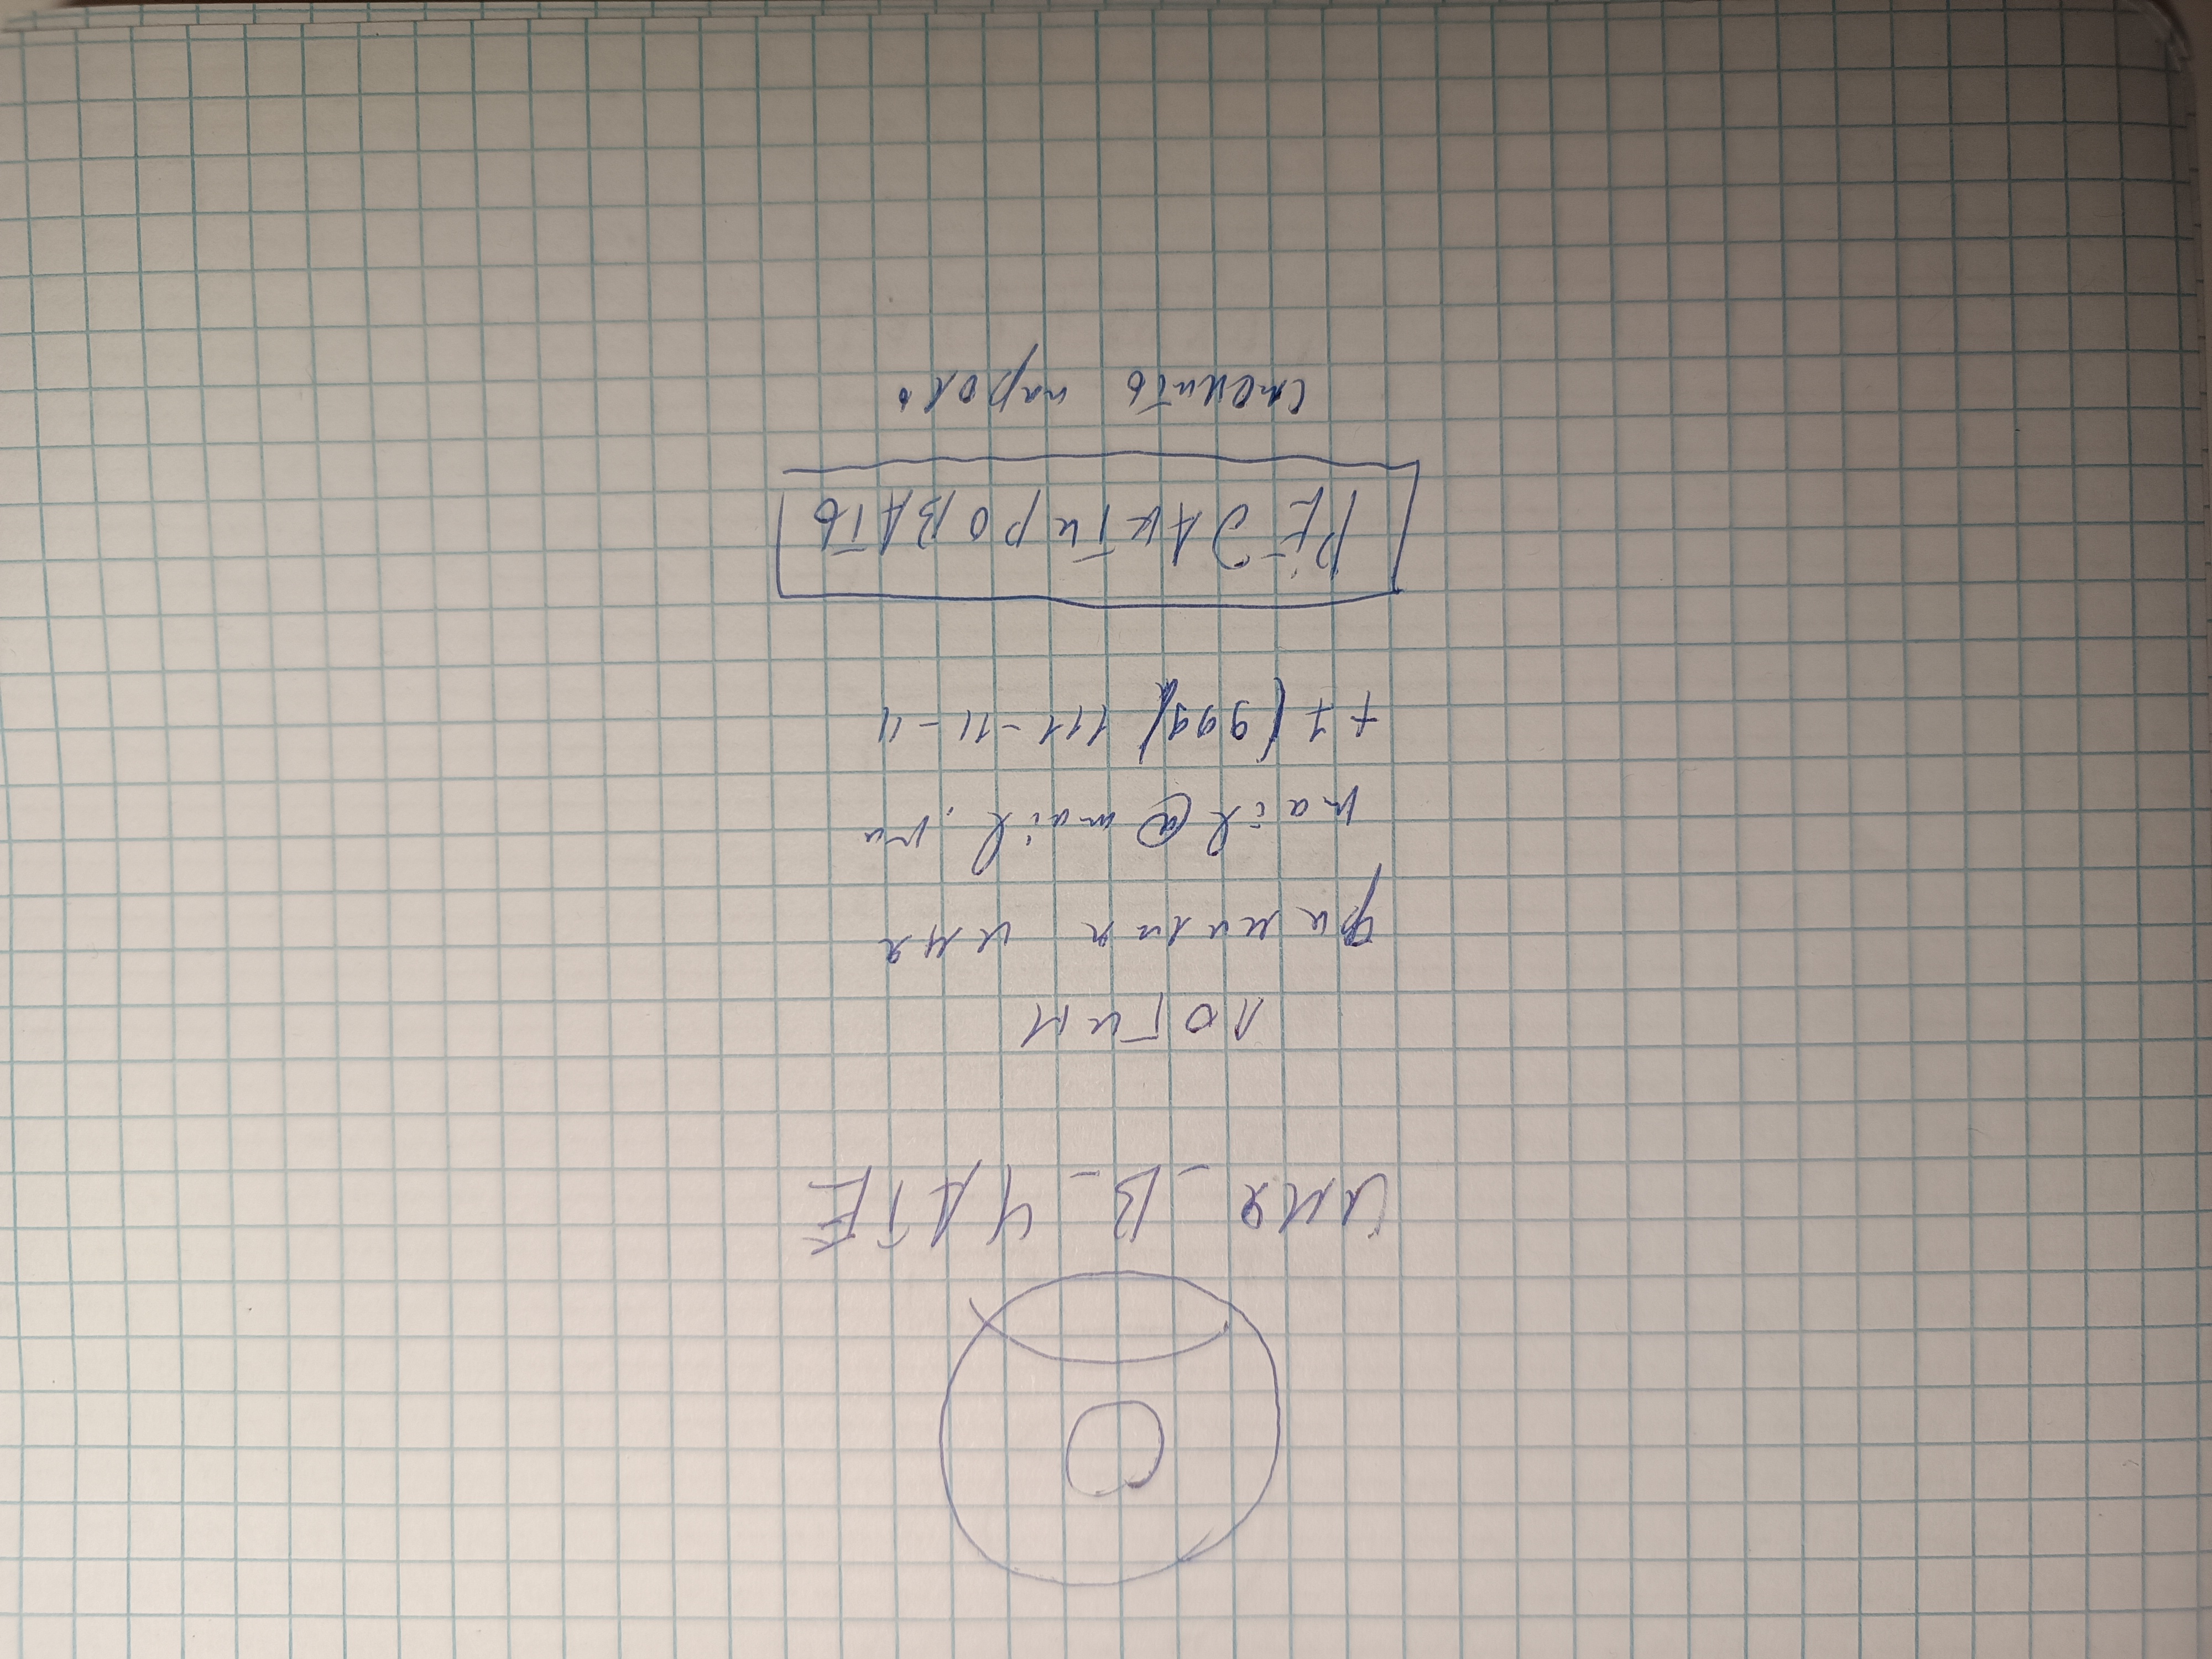 имя_В_ЧАТЕ
логин
фамилия имя
mail@mail.ru
+7(999) 111-11-11
РЕДАКТИРОВАТЬ
сменить пароль